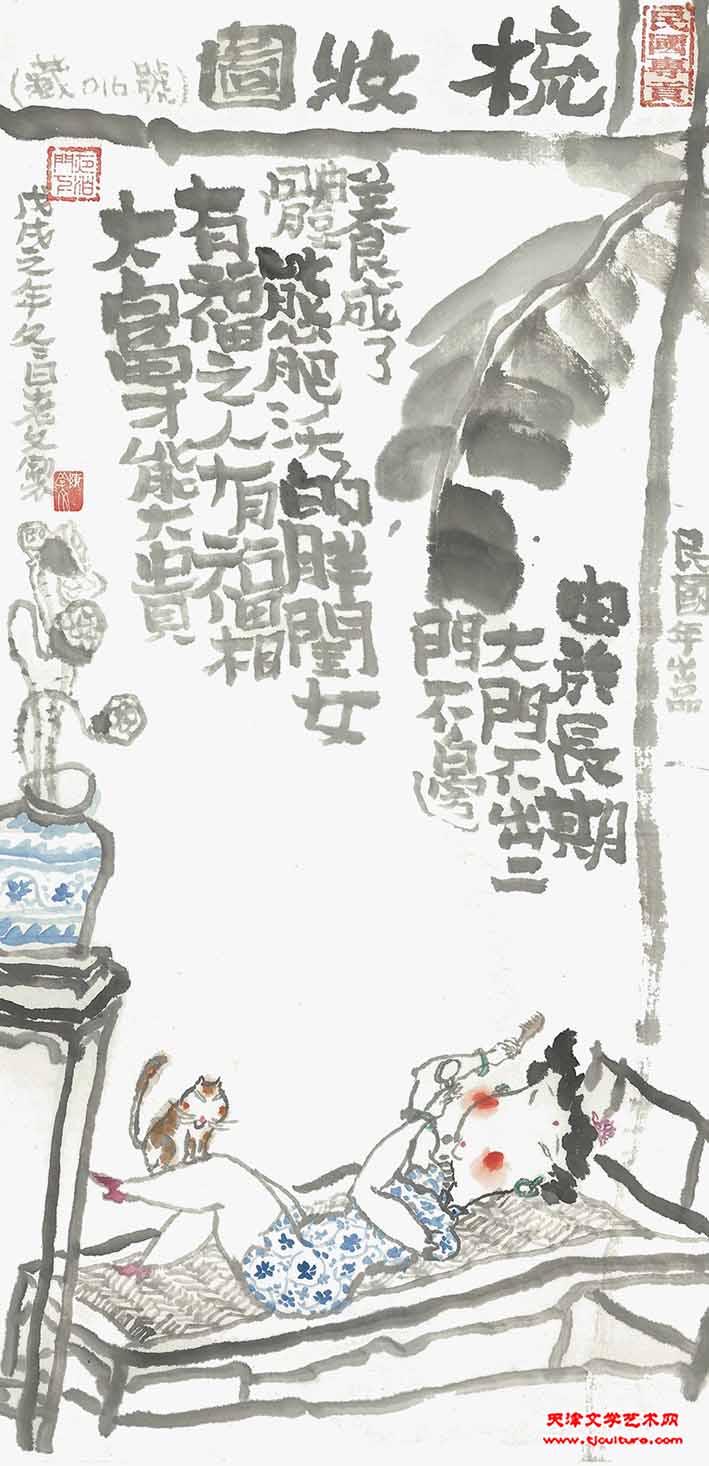 梳妝圖
(藏016號)
民國年出品
由於長期
大門不出二
門不邊
養成了
體態肥沃的胖閨女
有福之人有福相
大富才能大貴
戊戌之年冬
天津文学艺术网
www.tjculture.com